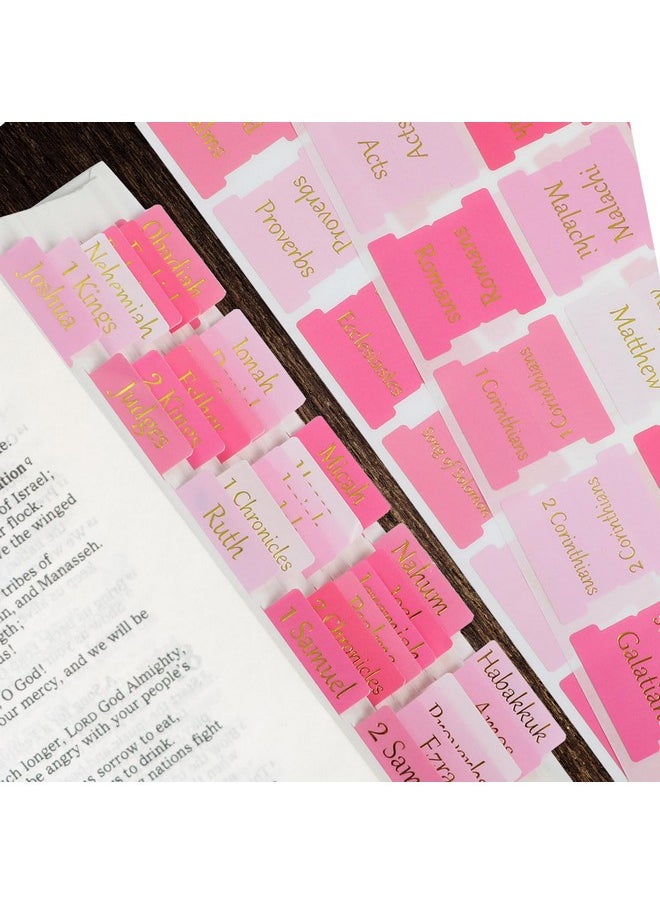 Obadiah
Nehemiah
1 Kings
Joshua
Jonah
Esther
2 Kings
Judges
Micah
1 Chronicles
Ruth
Nahum
Joel
Jeremiah
Psalms
2 Chronicles
1 Samuel
Habakkuk
Amos
Proverbs
Ezra
2 Sam
Acts
Acts
Proverbs
Proverbs
Romans
Romans
Malachi
Malachi
Ecclesiastes
Matthew
1 Corinthians
1 Corinthians
Song of Solomon
2 Corinthians
2 Corinthians
Galatian
of Israel;
r flock.
ve the winged
tribes of
in, and Manasseh.
O God!
your mercy, and we will be
ch longer, LORD God Almighty,
be angry with your people's
s sorrow to eat,
s to drink.
g nations fight